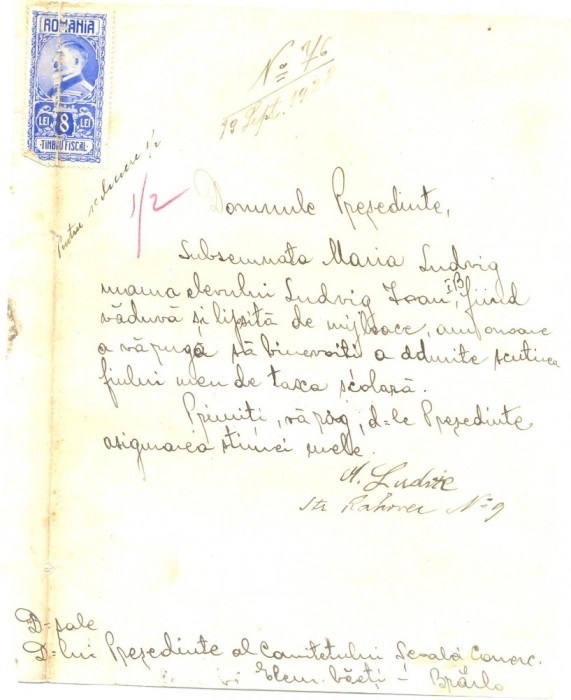 ROMANIA
LEI 8 LEI
TIMBRU FISCAL
No 76
19 Sept. 1928
Pentru reducere 1/2
1/2
Domnule Președinte,
Subsemnata Maria Ludvig
mama elevului Ludvig Ioan, I B, fiind
văduvă și lipsită de mijloace, am onoare
a vă ruga să binevoiți a admite scutirea
fiului meu de taxa școlară.
Primiți, vă rog, d-le Președinte
asigurarea stimei mele.
M. Ludvic
Str Rahovei No 9
D-sale
D-lui Președinte al Comitetului Școală Comerc.
Elem. băeți - Brăila